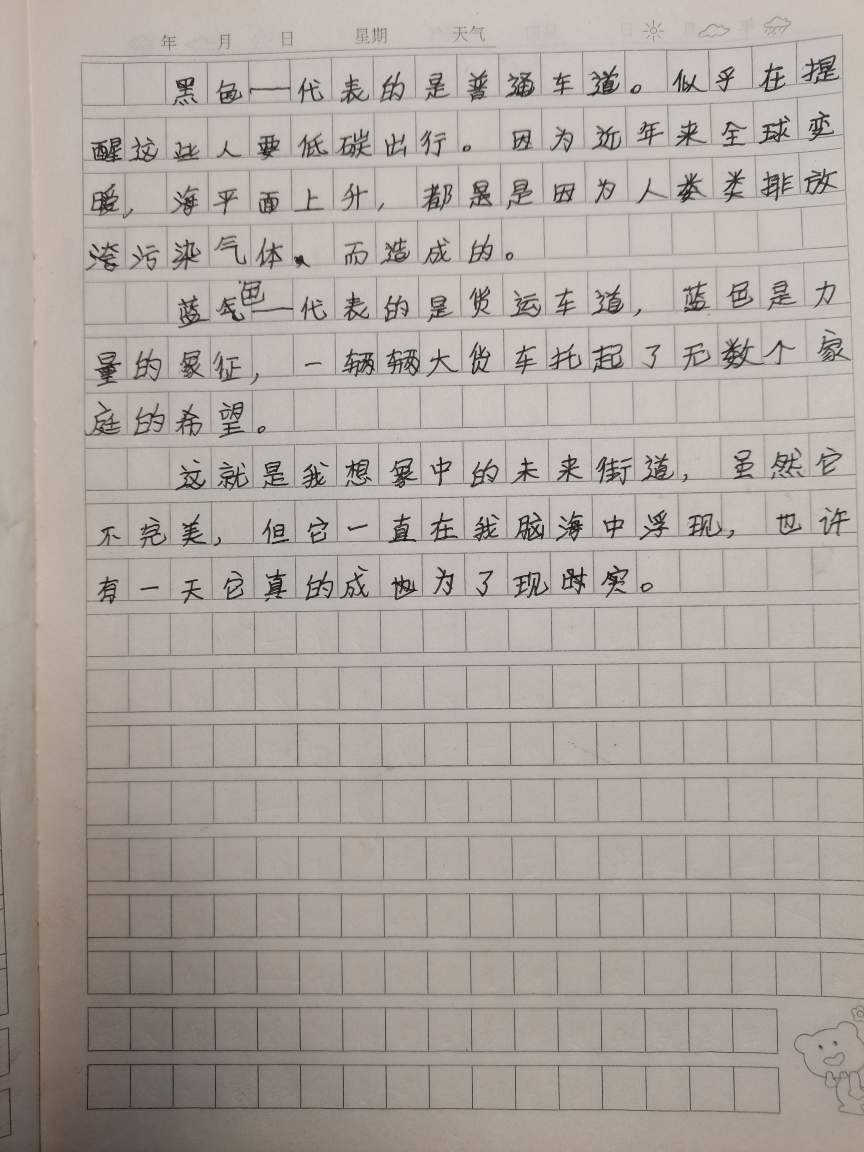 年 月 日 星期 天气
黑色——代表的是普通车道。似乎在提
醒这些人要低碳出行。因为近年来全球变
暖，海平面上升，都是是因为人类类排放
污染气体、而造成的。
蓝气色——代表的是货运车道，蓝色是力
量的象征，一辆辆大货车托起了无数个家
庭的希望。
这就是我想象中的未来街道，虽然它
不完美，但它一直在我脑海中浮现，也许
有一天它真的成也为了现时实。